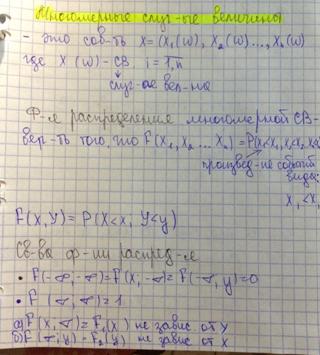 Многомерные случ-ые величины
- это сов-ть X=(X₁(ω), X₂(ω)..., Xₙ(ω)
где X (ω) - СВ i = 1,n
случ-ая вел-на
Ф-я распределения многомерной СВ-
вер-ть того, что F(X₁, X₂... Xₙ) = P(X<x₁, X<x₂
произвед-ие событий
вида:
X₁<x₁
F(X,Y) = P(X<x, Y<y)
Св-ва ф-ии распред-я
• F(-∞,-∞)=F(X,-∞)=F(-∞,y)=0
• F(∞,∞)=1
а) F(X,∞)=F₁(X) не завис от y
б) F(∞,y)=F₂(y) не завис от X